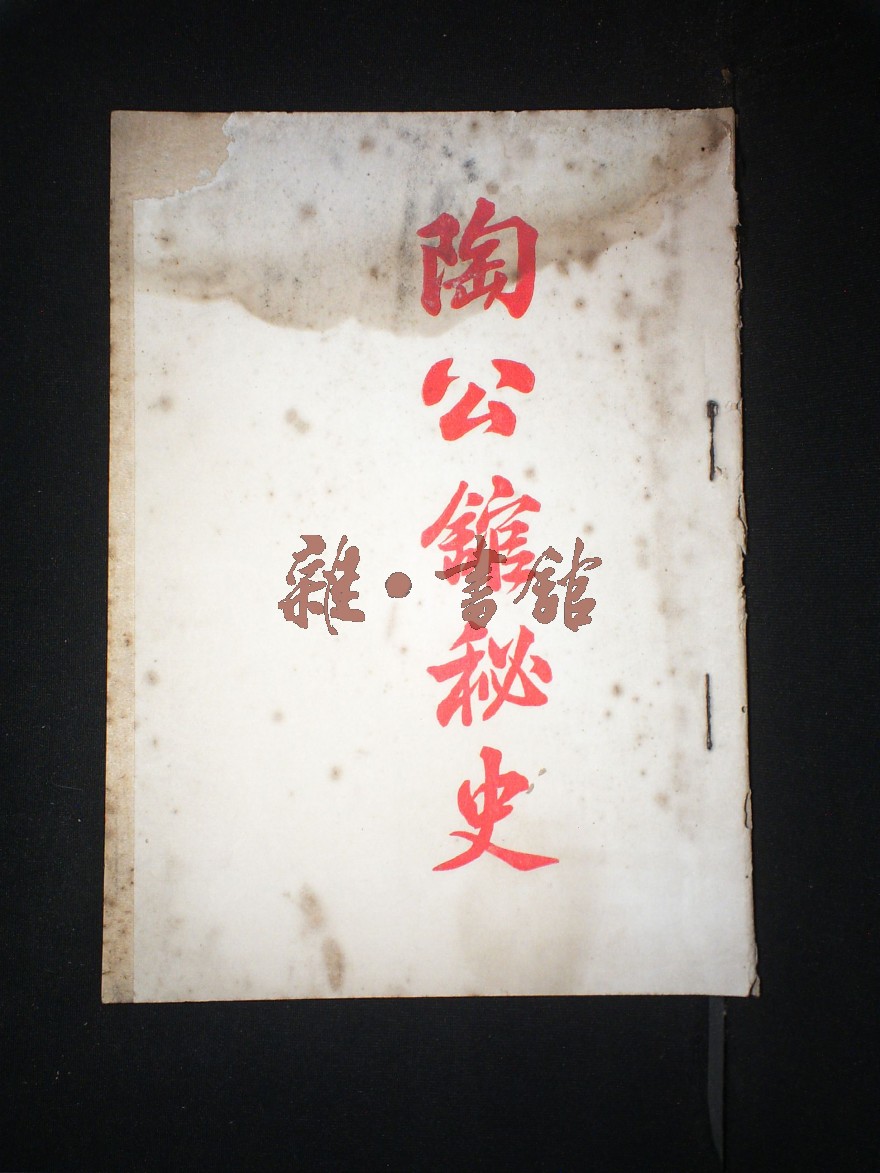 陶公館秘史
雜·書館